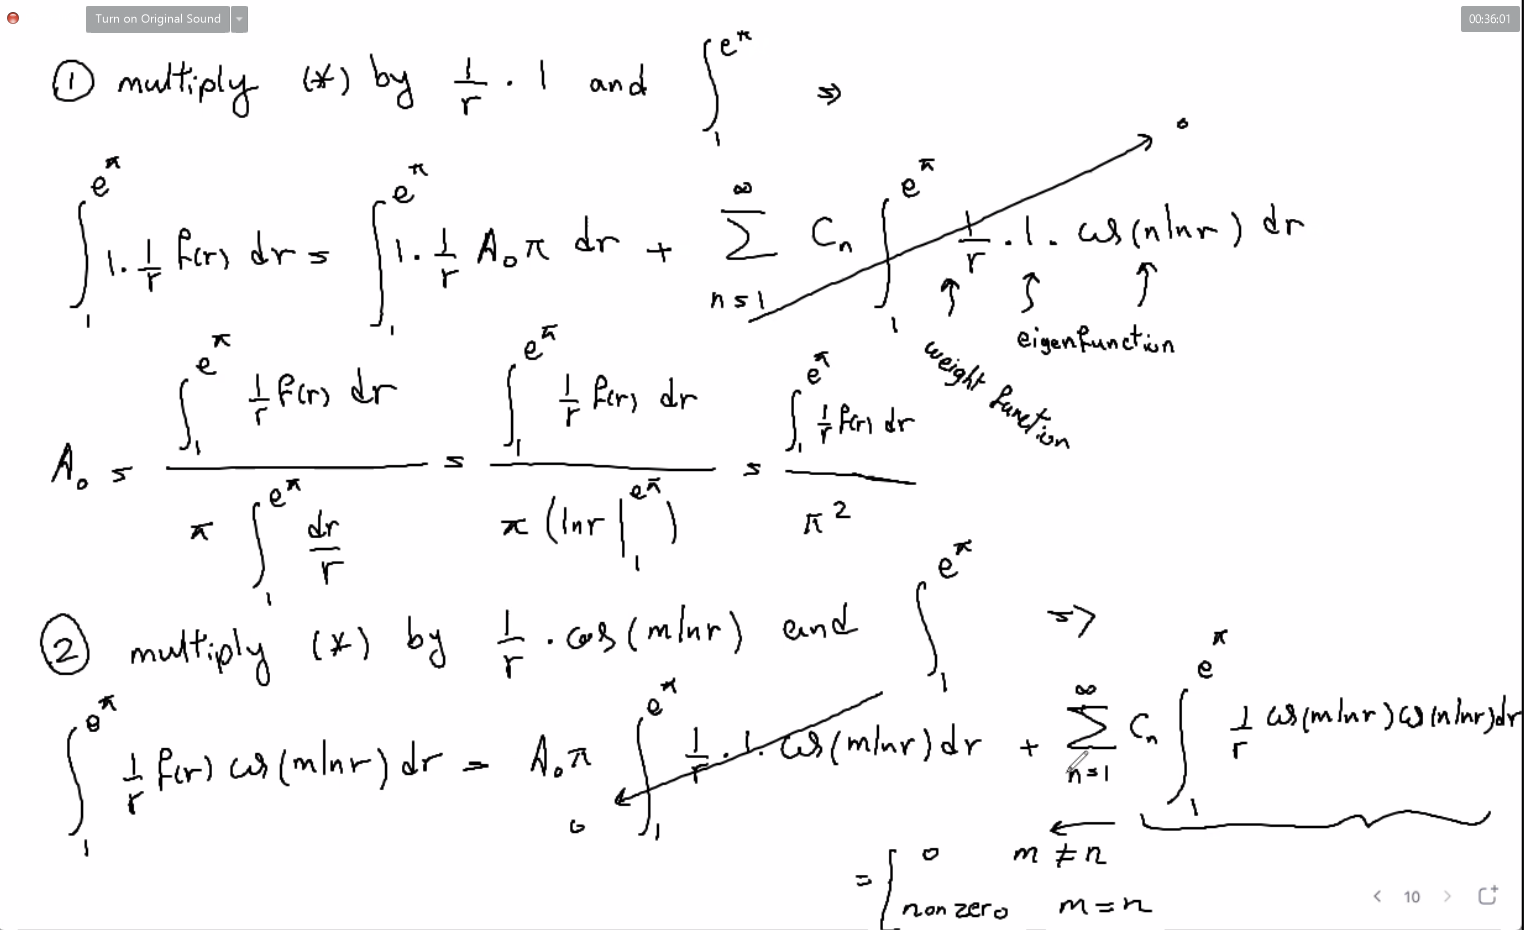 Turn on Original Sound
00:36:01
① multiply (*) by 1/r · 1 and ∫₁^{e^π} ⇒
∫₁^{e^π} 1 · 1/r f(r) dr = ∫₁^{e^π} 1 · 1/r A₀ π dr + ∑_{n=1}^∞ Cₙ ∫₁^{e^π} 1/r · 1 · cos(n ln r) dr → 0
weight function
eigenfunction
A₀ = (∫₁^{e^π} 1/r f(r) dr) / (π ∫₁^{e^π} dr/r) = (∫₁^{e^π} 1/r f(r) dr) / (π (ln r |₁^{e^π})) = (∫₁^{e^π} 1/r f(r) dr) / π²
② multiply (*) by 1/r · cos(m ln r) and ∫₁^{e^π} =>
∫₁^{e^π} 1/r f(r) cos(m ln r) dr = A₀ π ∫₁^{e^π} 1/r · 1 · cos(m ln r) dr + ∑_{n=1}^∞ Cₙ ∫₁^{e^π} 1/r cos(m ln r) cos(n ln r) dr
0
= { 0 m ≠ n
nonzero m = n
10